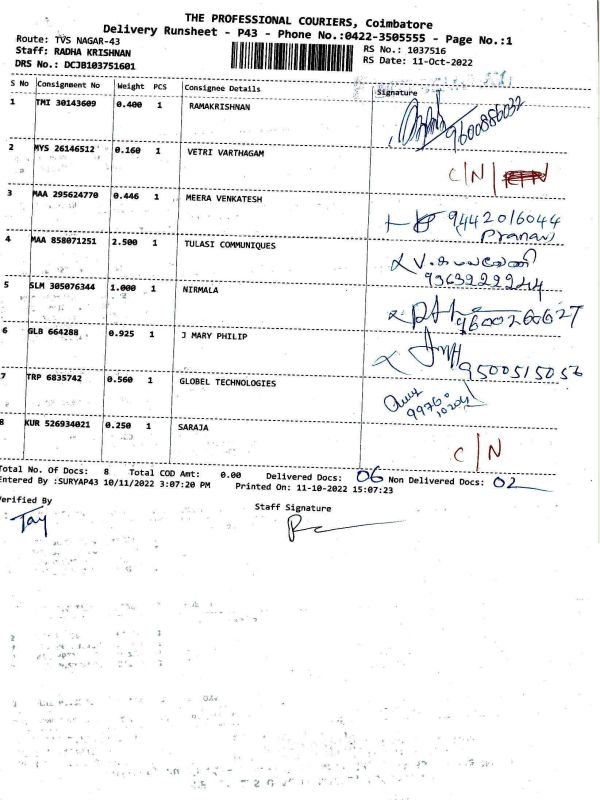 THE PROFESSIONAL COURIERS, Coimbatore
Delivery Runsheet - P43 - Phone No.:0422-3505555 - Page No.:1
Route: TVS NAGAR-43
RS No.: 1037516
Staff: RADHA KRISHNAN
RS Date: 11-Oct-2022
DRS No.: DCJB103751601
S No Consignment No Weight PCS Consignee Details Signature
1 TMI 30143609 0.400 1 RAMAKRISHNAN
9600886032
2 MYS 26146512 0.160 1 VETRI VARTHAGAM
C/N/
3 MAA 295624770 0.446 1 MEERA VENKATESH
9442016044
Pranav
4 MAA 858071251 2.500 1 TULASI COMMUNIQUES
5 SLM 305076344 1.000 1 NIRMALA
9600260627
6 GLB 664288 0.925 1 J MARY PHILIP
9500515056
7 TRP 6835742 0.560 1 GLOBEL TECHNOLOGIES
8 KUR 526934021 0.250 1 SARAJA
C/N
Total No. Of Docs: 8 Total COD Amt: 0.00 Delivered Docs: 06 Non Delivered Docs: 02
Entered By :SURYAP43 10/11/2022 3:07:20 PM Printed On: 11-10-2022 15:07:23
Verified By
Staff Signature